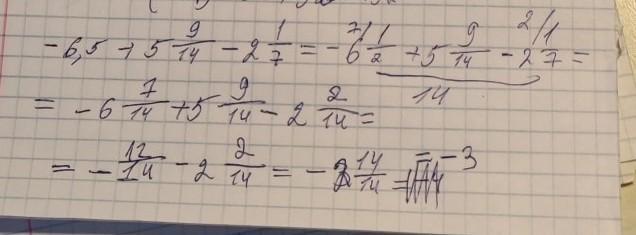 -6,5 + 5 9/14 - 2 1/7 = -6 1/2 7/ + 5 9/14 - 2 1/7 2/ =
14
= -6 7/14 + 5 9/14 - 2 2/14 =
= - 12/14 - 2 2/14 = - 2 14/14 = = -3